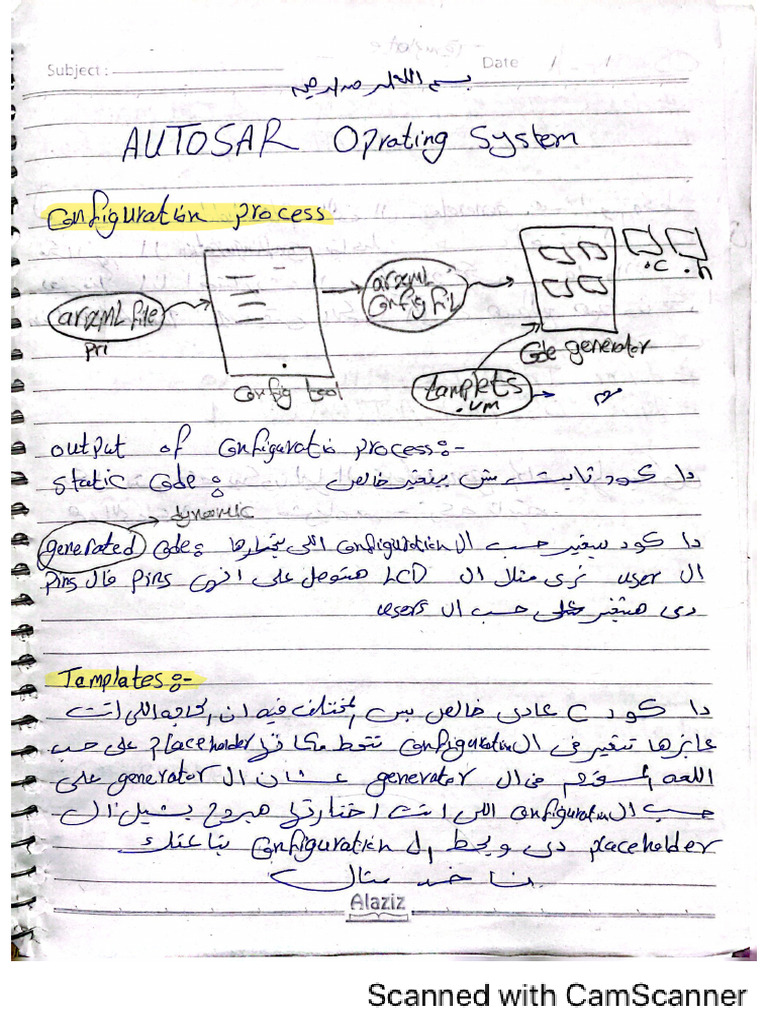 Subject :
Date / /
بسم الله الرحمن الرحيم
AUTOSAR Oprating System
Configuration process
arxml file
pri
Config tool
arxml
Config fil
.c .h
Code generator
tamplets
.vm
output of Configuratio process:-
static Code : دا كود ثابت مش بيتغير خالص
dynamic
generated Code : دا كود بيتغير حسب ال Configuration اللى بيختارها
ال user نرى مثلا ال LCD هتوصل على انهى pins فال pins
دى هتتغير حسب ال users
Tamplates :-
دا كود C عادى خالص بس المختلف فيه ان الحاجه اللى انت
عايزها تتغير فى ال Configuration تتحط مكانها placeholder على حسب
اللغه المستخدم فى ال generator عشان ال generator على
حسب ال Configuration اللى انت اختارتها هيروح يشيل ال
placeholder دى ويحط ال Configuration بتاعتك
ناخد مثال
Alaziz
Scanned with CamScanner